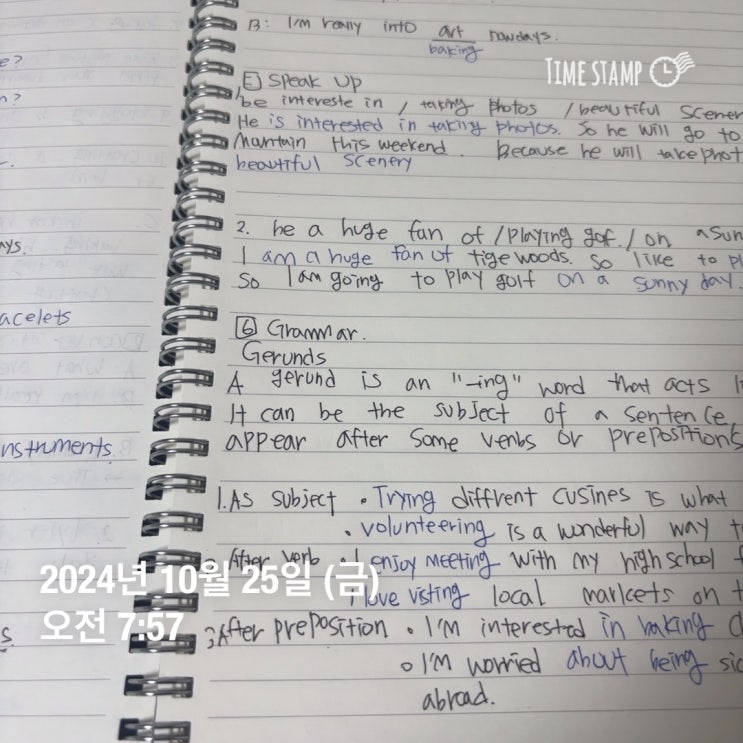 B: I'm really into art nowdays.
baking
TIME STAMP
5 Speak Up
be intereste in / taking photos / beautiful scener
He is interested in taking photos. So he will go to
Mauntain this weekend. Because he will take phot
beautiful scenery
2. be a huge fan of / playing gof. / on a sun
I am a huge fan of tige woods. So like to pl
So I am going to play golf on a sunny day.
6 Grammar.
Gerunds
A gerund is an "-ing" word that acts l
It can be the subject of a sentence,
appear after some verbs or prepositions
1. As subject • Trying diffrent cusines is what
• volunteering is a wonderful way t
After verb • I enjoy meeting with my high school f
I love visting local markets on t
3. After preposition • I'm interested in baking c
• I'm worried about being sic
abroad.
e?
n?
ays.
acelets
nstruments.
s.
2024년 10월 25일 (금)
오전 7:57